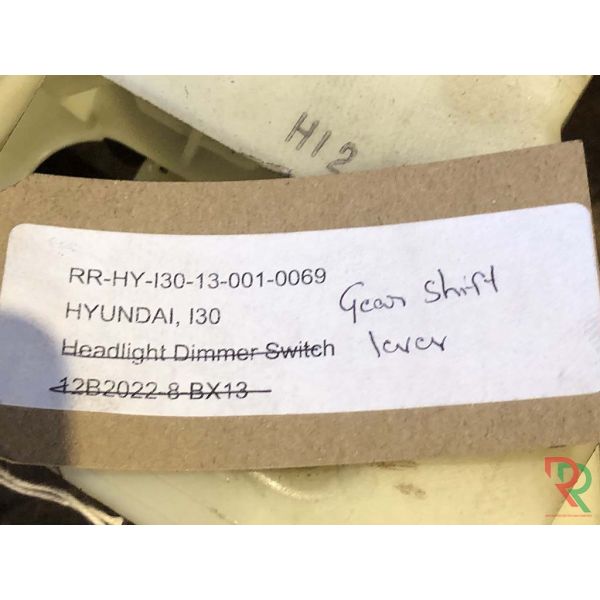 H12
RR-HY-I30-13-001-0069
HYUNDAI, I30
Headlight Dimmer Switch
12B2022-8 BX13
Gear shift
lever
RR